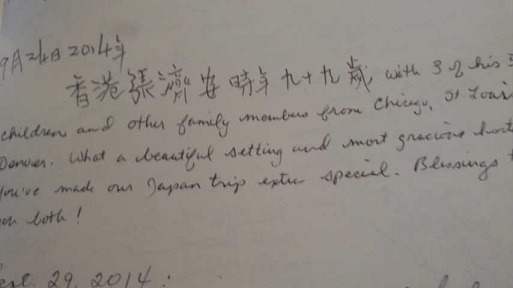 9月24日2014年
香港張濟安時年九十九歲 with 3 of his
children and other family members from Chicago, St Louis
Denver. What a beautiful setting and most gracious host
You've made our Japan trip extra special. Blessings
both!
Sept. 29, 2014: